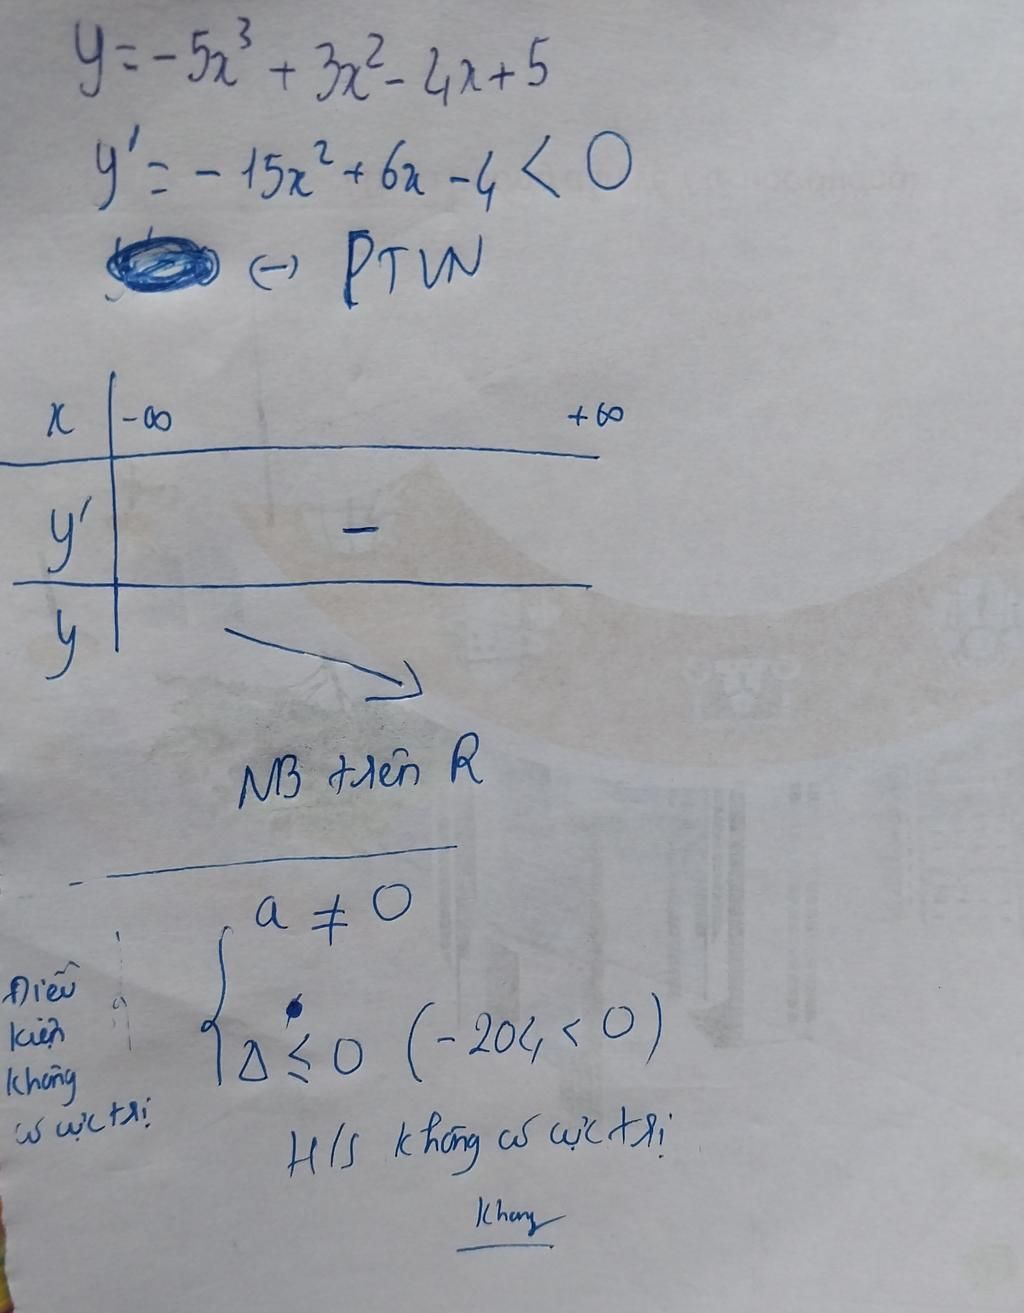 y = -5x³ + 3x² - 4x + 5
y' = -15x² + 6x - 4 < 0
(-) PTVN
x -∞ +∞
y' -
y
NB trên R
a ≠ 0
Điều
kiện
không
có cực trị
Δ ≤ 0 (-204 < 0)
H/S không có cực trị
Khang